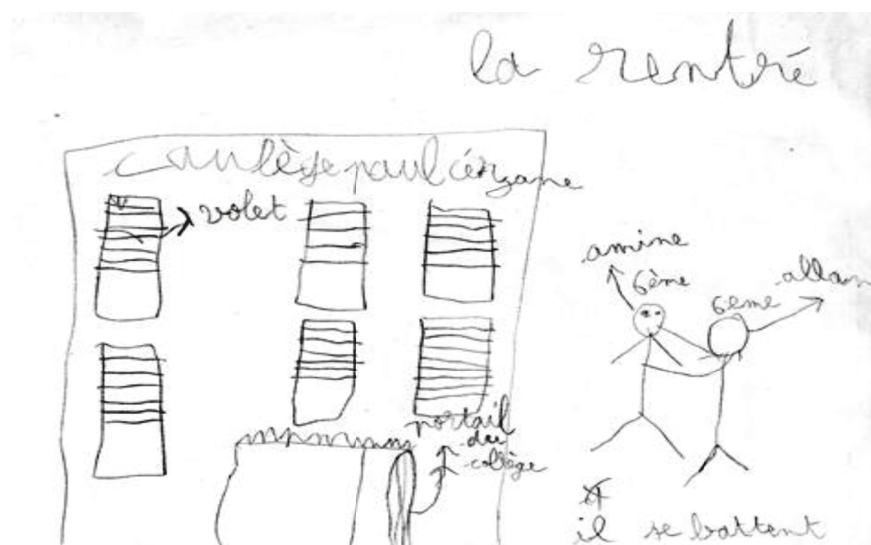 la rentré
caulège paul cézane
volet
amine
6ème
allan
6eme
portail
du
collège
il se battent